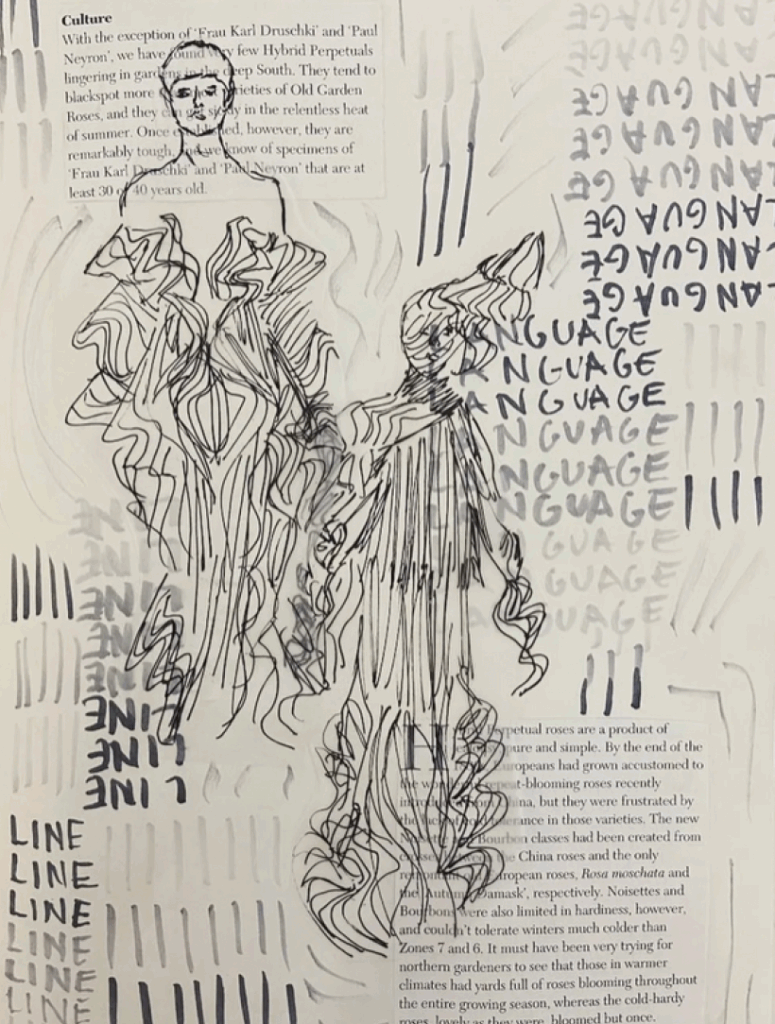 Culture
With the exception of 'Frau Karl Druschki' and 'Paul
Neyron', we have found very few Hybrid Perpetuals
lingering in gardens in the deep South. They tend to
blackspot more varieties of Old Garden
Roses, and they can get sickly in the relentless heat
of summer. Once established, however, they are
remarkably tough, and we know of specimens of
'Frau Karl Druschki' and 'Paul Neyron' that are at
least 30 of 40 years old.
LANGUAGE
LANGUAGE
LANGUAGE
LANGUAGE
LANGUAGE
LANGUAGE
LANGUAGE
LANGUAGE
ANGUAGE
LANGUAGE
LANGUAGE
ANGUAGE
LANGUAGE
LANGUAGE
GUAGE
GUAGE
ANGUAGE
LINE
LINE
LINE
LINE
LINE
LINE
LINE
LINE
LINE
LINE
LINE
LINE
LINE
LINE
H Perpetual roses are a product of
pure and simple. By the end of the
Europeans had grown accustomed to
the repeat-blooming roses recently
introduced China, but they were frustrated by
the lack of cold tolerance in those varieties. The new
Noisette Bourbon classes had been created from
crosses between the China roses and the only
European roses, Rosa moschata and
the 'Autumn Damask', respectively. Noisettes and
Bourbons were also limited in hardiness, however,
and couldn't tolerate winters much colder than
Zones 7 and 6. It must have been very trying for
northern gardeners to see that those in warmer
climates had yards full of roses blooming throughout
the entire growing season, whereas the cold-hardy
roses, lovely as they were, bloomed but once.